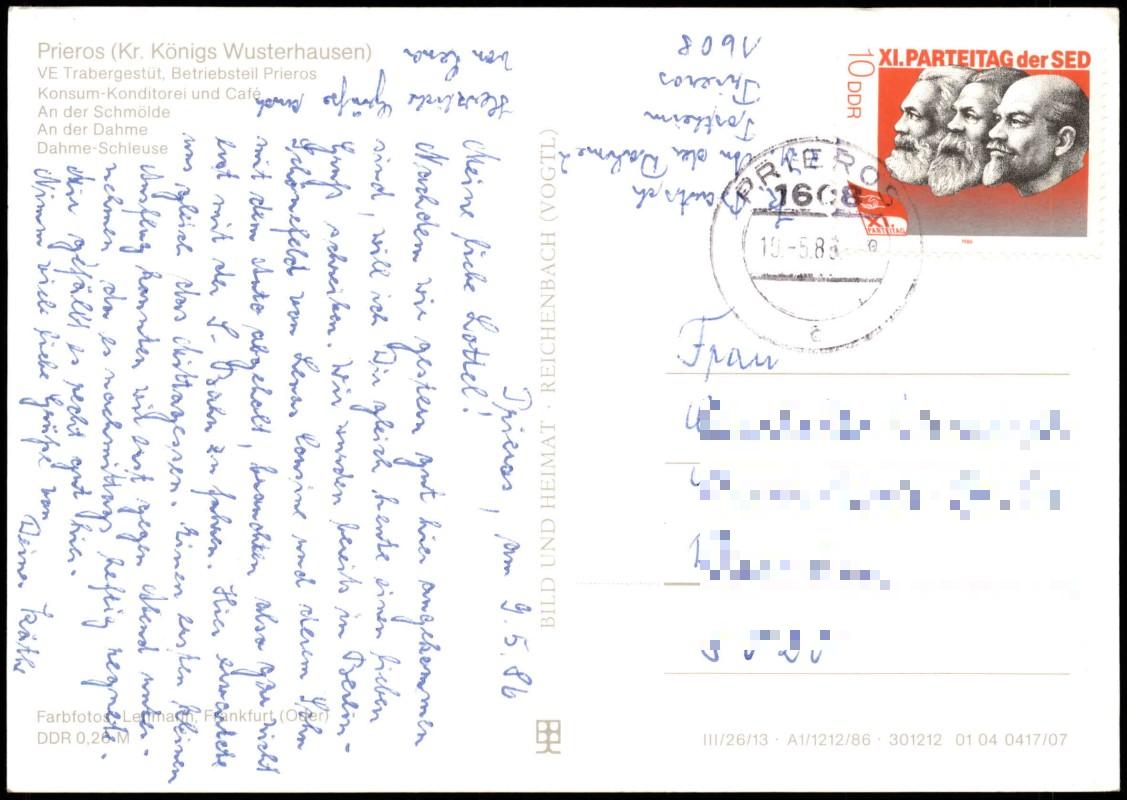 Prieros (Kr. Königs Wusterhausen)
VE Trabergestüt, Betriebsteil Prieros
Konsum-Konditorei und Café
An der Schmölde
An der Dahme
Dahme-Schleuse
Prieros, am 9.5.86
Meine liebe Lottel!
Nachdem wir gestern gut hier angekommen
sind, will ich Dir gleich heute einen lieben
Gruß schreiben. Wir wurden bereits in Berlin-
Schönefeld von Lenas Cousine und deren Sohn
mit dem Auto abgeholt, brauchten also gar nicht
erst mit der S-Bahn zu fahren. Hier erwartete
uns gleich das Mittagessen. Einen ersten kleinen
Ausflug konnten wir erst gegen Abend unter-
nehmen, da es nachmittags heftig regnete.
Mir gefällt es recht gut hier.
Nimm viele liebe Grüße von
Deiner Käthe
Herzliche Grüße auch
von Lena
Farbfotos: Lehmann, Frankfurt (Oder)
DDR 0,20 M
BILD UND HEIMAT · REICHENBACH (VOGTL)
Deutsch
An der Dahme 2
Forstheim
Prieros
1608
XI. PARTEITAG der SED
10 DDR
XI.
PARTEITAG
1986
PRIEROS
1608
-5.86
c
Frau
III/26/13 · A1/1212/86 · 301212 01 04 0417/07